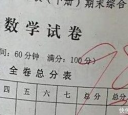 (下册)期末综合
数学试卷
间:60分钟 满分:100分)
全卷总分表
四 五 六 七 八 总分